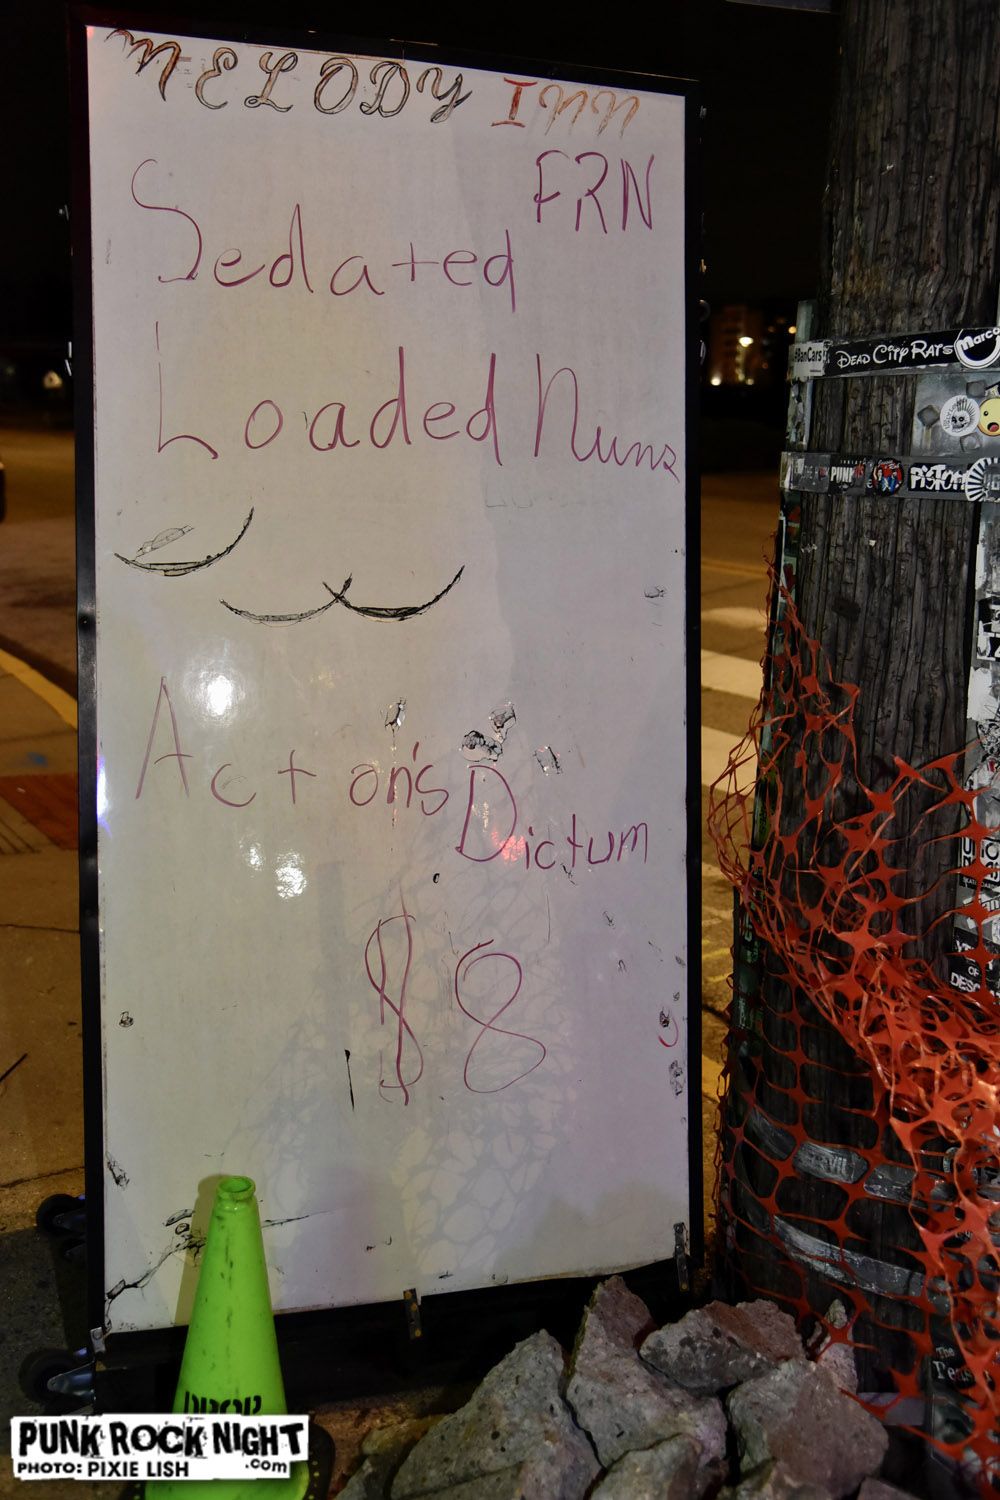 MELODY Inn
FRN
Sedated
Loaded Nuns
Acton's Dictum
$8
#BanCars
DEAD CITY RATS
Marco
PUNK
PiSTON
OF
DESC
The
PUNK ROCK NIGHT
.com
PHOTO: PIXIE LISH